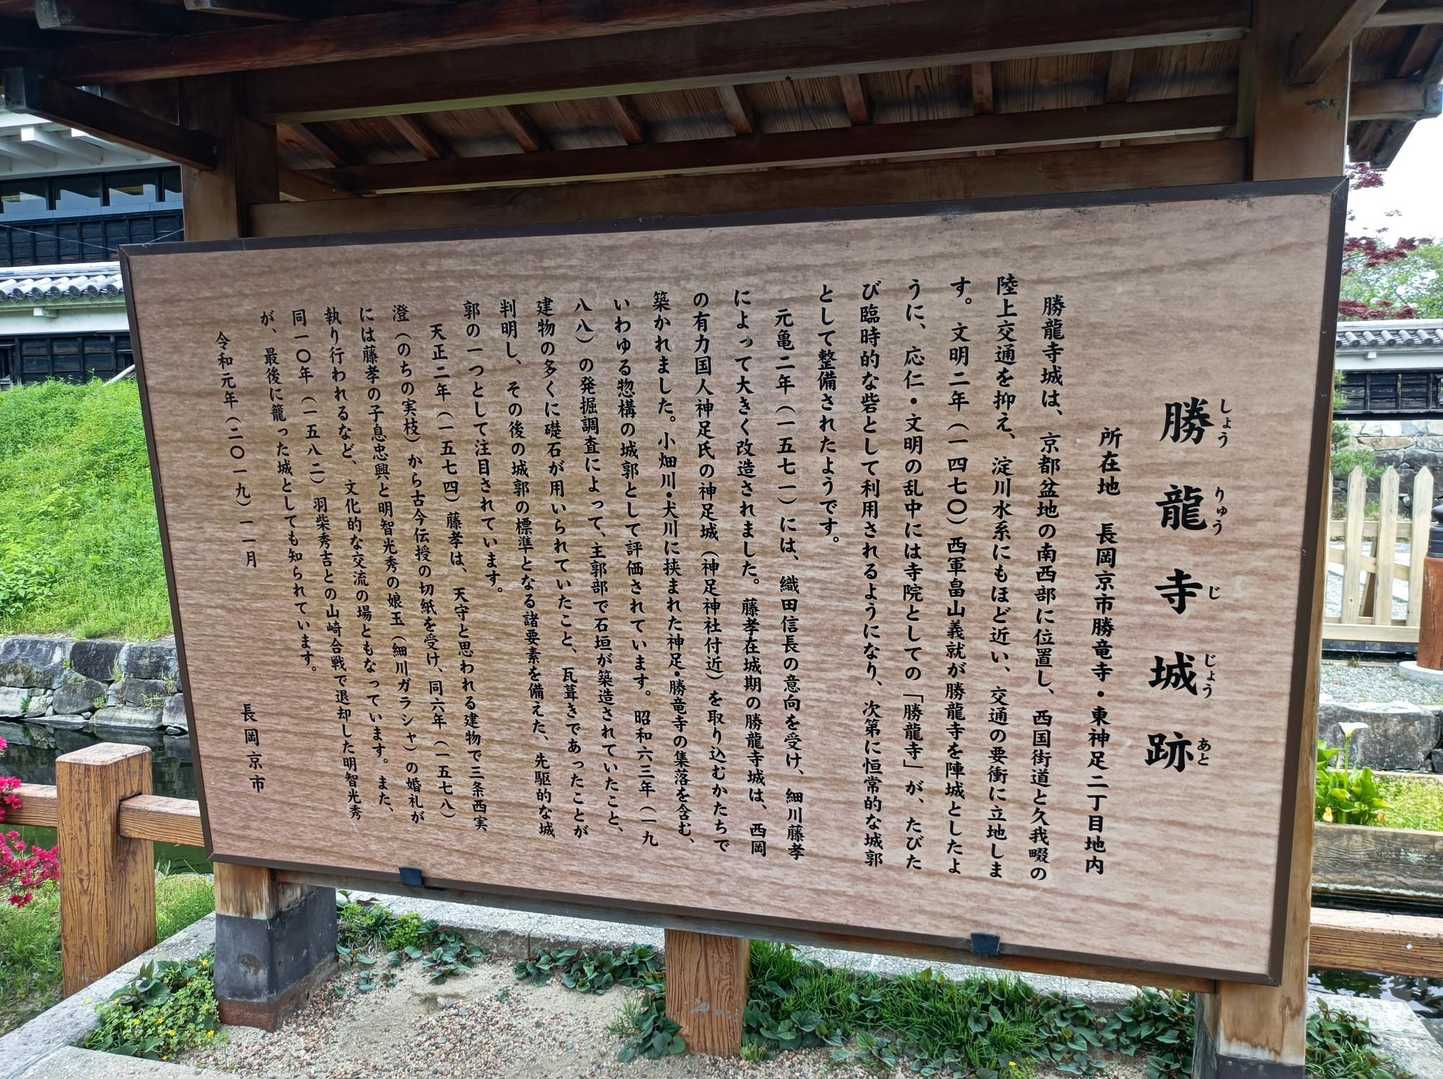 勝龍寺城跡
しょう りゅう じ じょう あと
所在地 長岡京市勝竜寺・東神足二丁目地内
勝龍寺城は、京都盆地の南西部に位置し、西国街道と久我畷の
陸上交通を抑え、淀川水系にもほど近い、交通の要衝に立地しま
す。文明二年（一四七〇）西軍畠山義就が勝龍寺を陣城としたよ
うに、応仁・文明の乱中には寺院としての「勝龍寺」が、たびた
び臨時的な砦として利用されるようになり、次第に恒常的な城郭
として整備されたようです。
元亀二年（一五七一）には、織田信長の意向を受け、細川藤孝
によって大きく改造されました。藤孝在城期の勝龍寺城は、西岡
の有力国人神足氏の神足城（神足神社付近）を取り込むかたちで
築かれました。小畑川・犬川に挟まれた神足・勝竜寺の集落を含む、
いわゆる惣構の城郭として評価されています。昭和六三年（一九
八八）の発掘調査によって、主郭部で石垣が築造されていたこと、
建物の多くに礎石が用いられていたこと、瓦葺きであったことが
判明し、その後の城郭の標準となる諸要素を備えた、先駆的な城
郭の一つとして注目されています。
天正二年（一五七四）藤孝は、天守と思われる建物で三条西実
澄（のちの実枝）から古今伝授の切紙を受け、同六年（一五七八）
には藤孝の子息忠興と明智光秀の娘玉（細川ガラシャ）の婚礼が
執り行われるなど、文化的な交流の場ともなっています。また、
同一〇年（一五八二）羽柴秀吉との山崎合戦で退却した明智光秀
が、最後に籠った城としても知られています。
令和元年（二〇一九）一一月
長岡京市